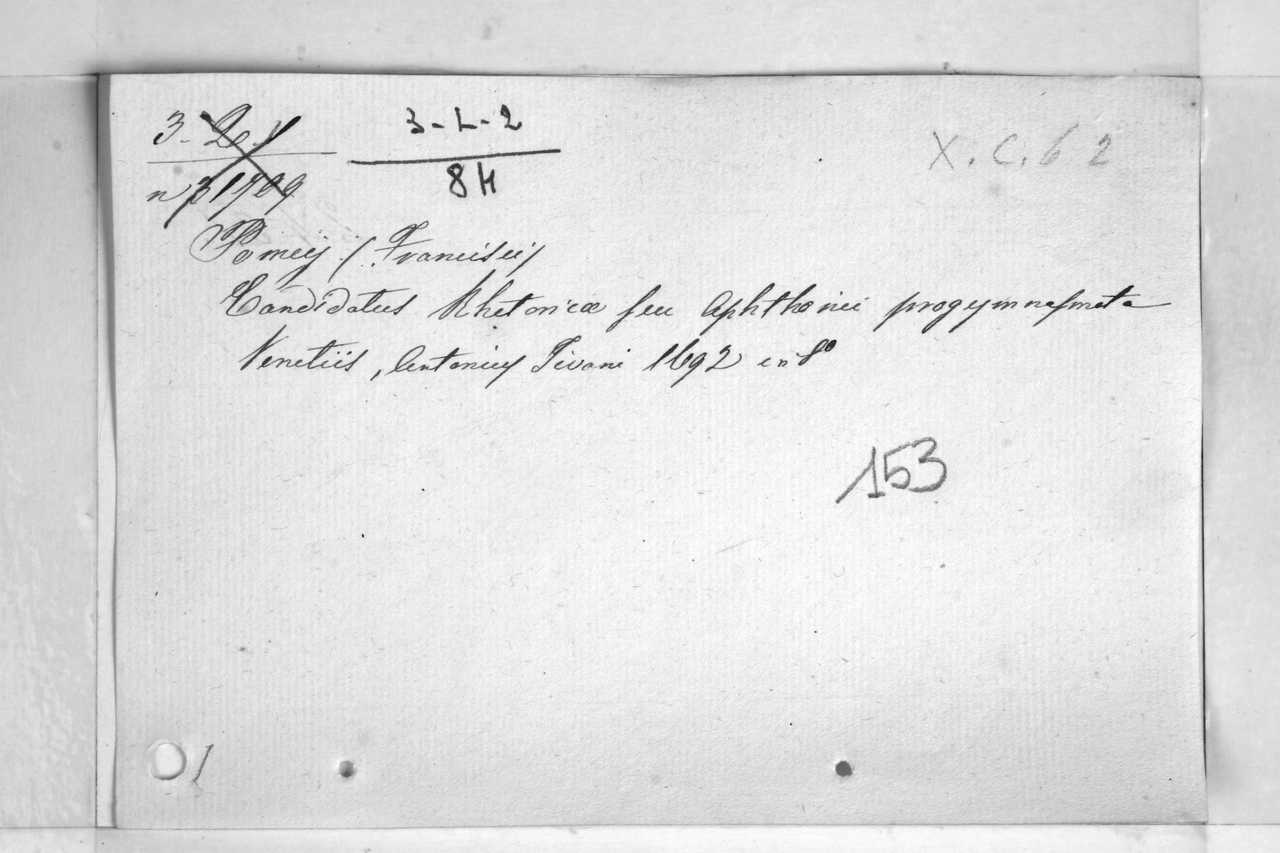 3-L-2
84
X.C.6 2
Pomeij (Francisci)
Candidatus Rhetoricæ seu Aphthonii progymnasmata
Venetiis, Antonius Tivani 1692 in 8º
153
1